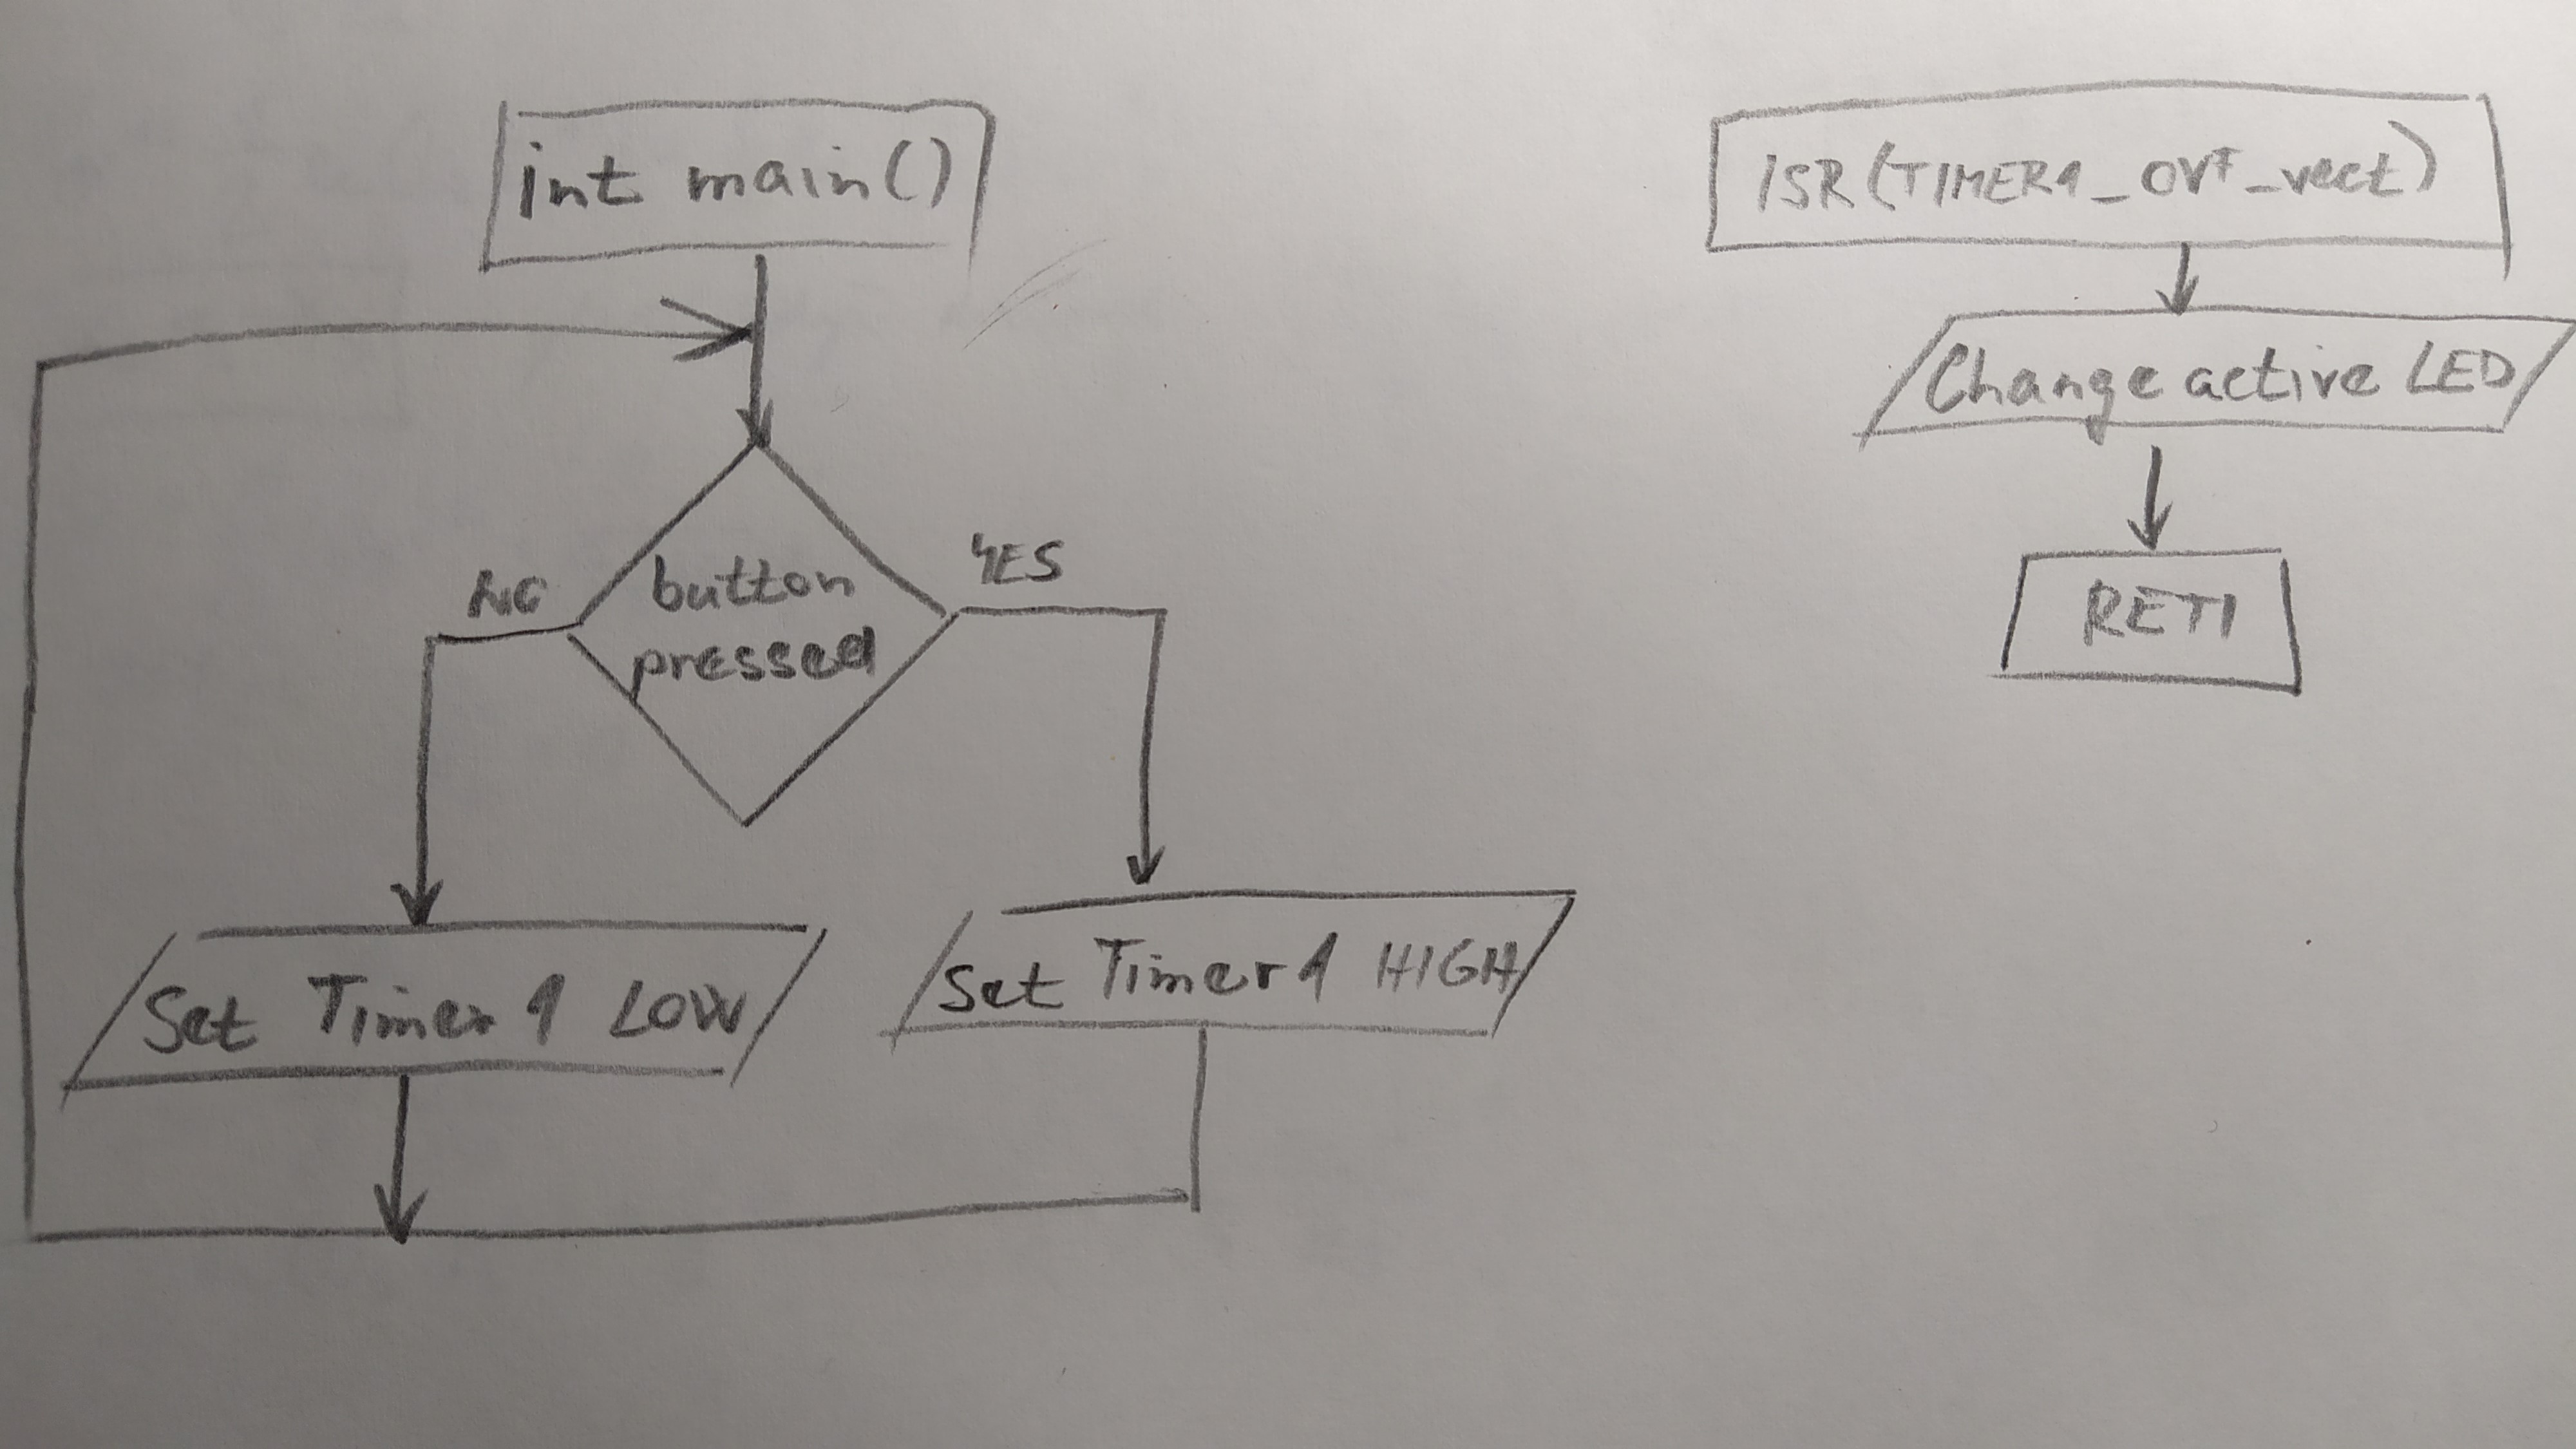 int main()
NO
button
pressed
YES
Set Timer1 LOW
Set Timer1 HIGH
ISR(TIMER1_OVF_vect)
Change active LED
RETI